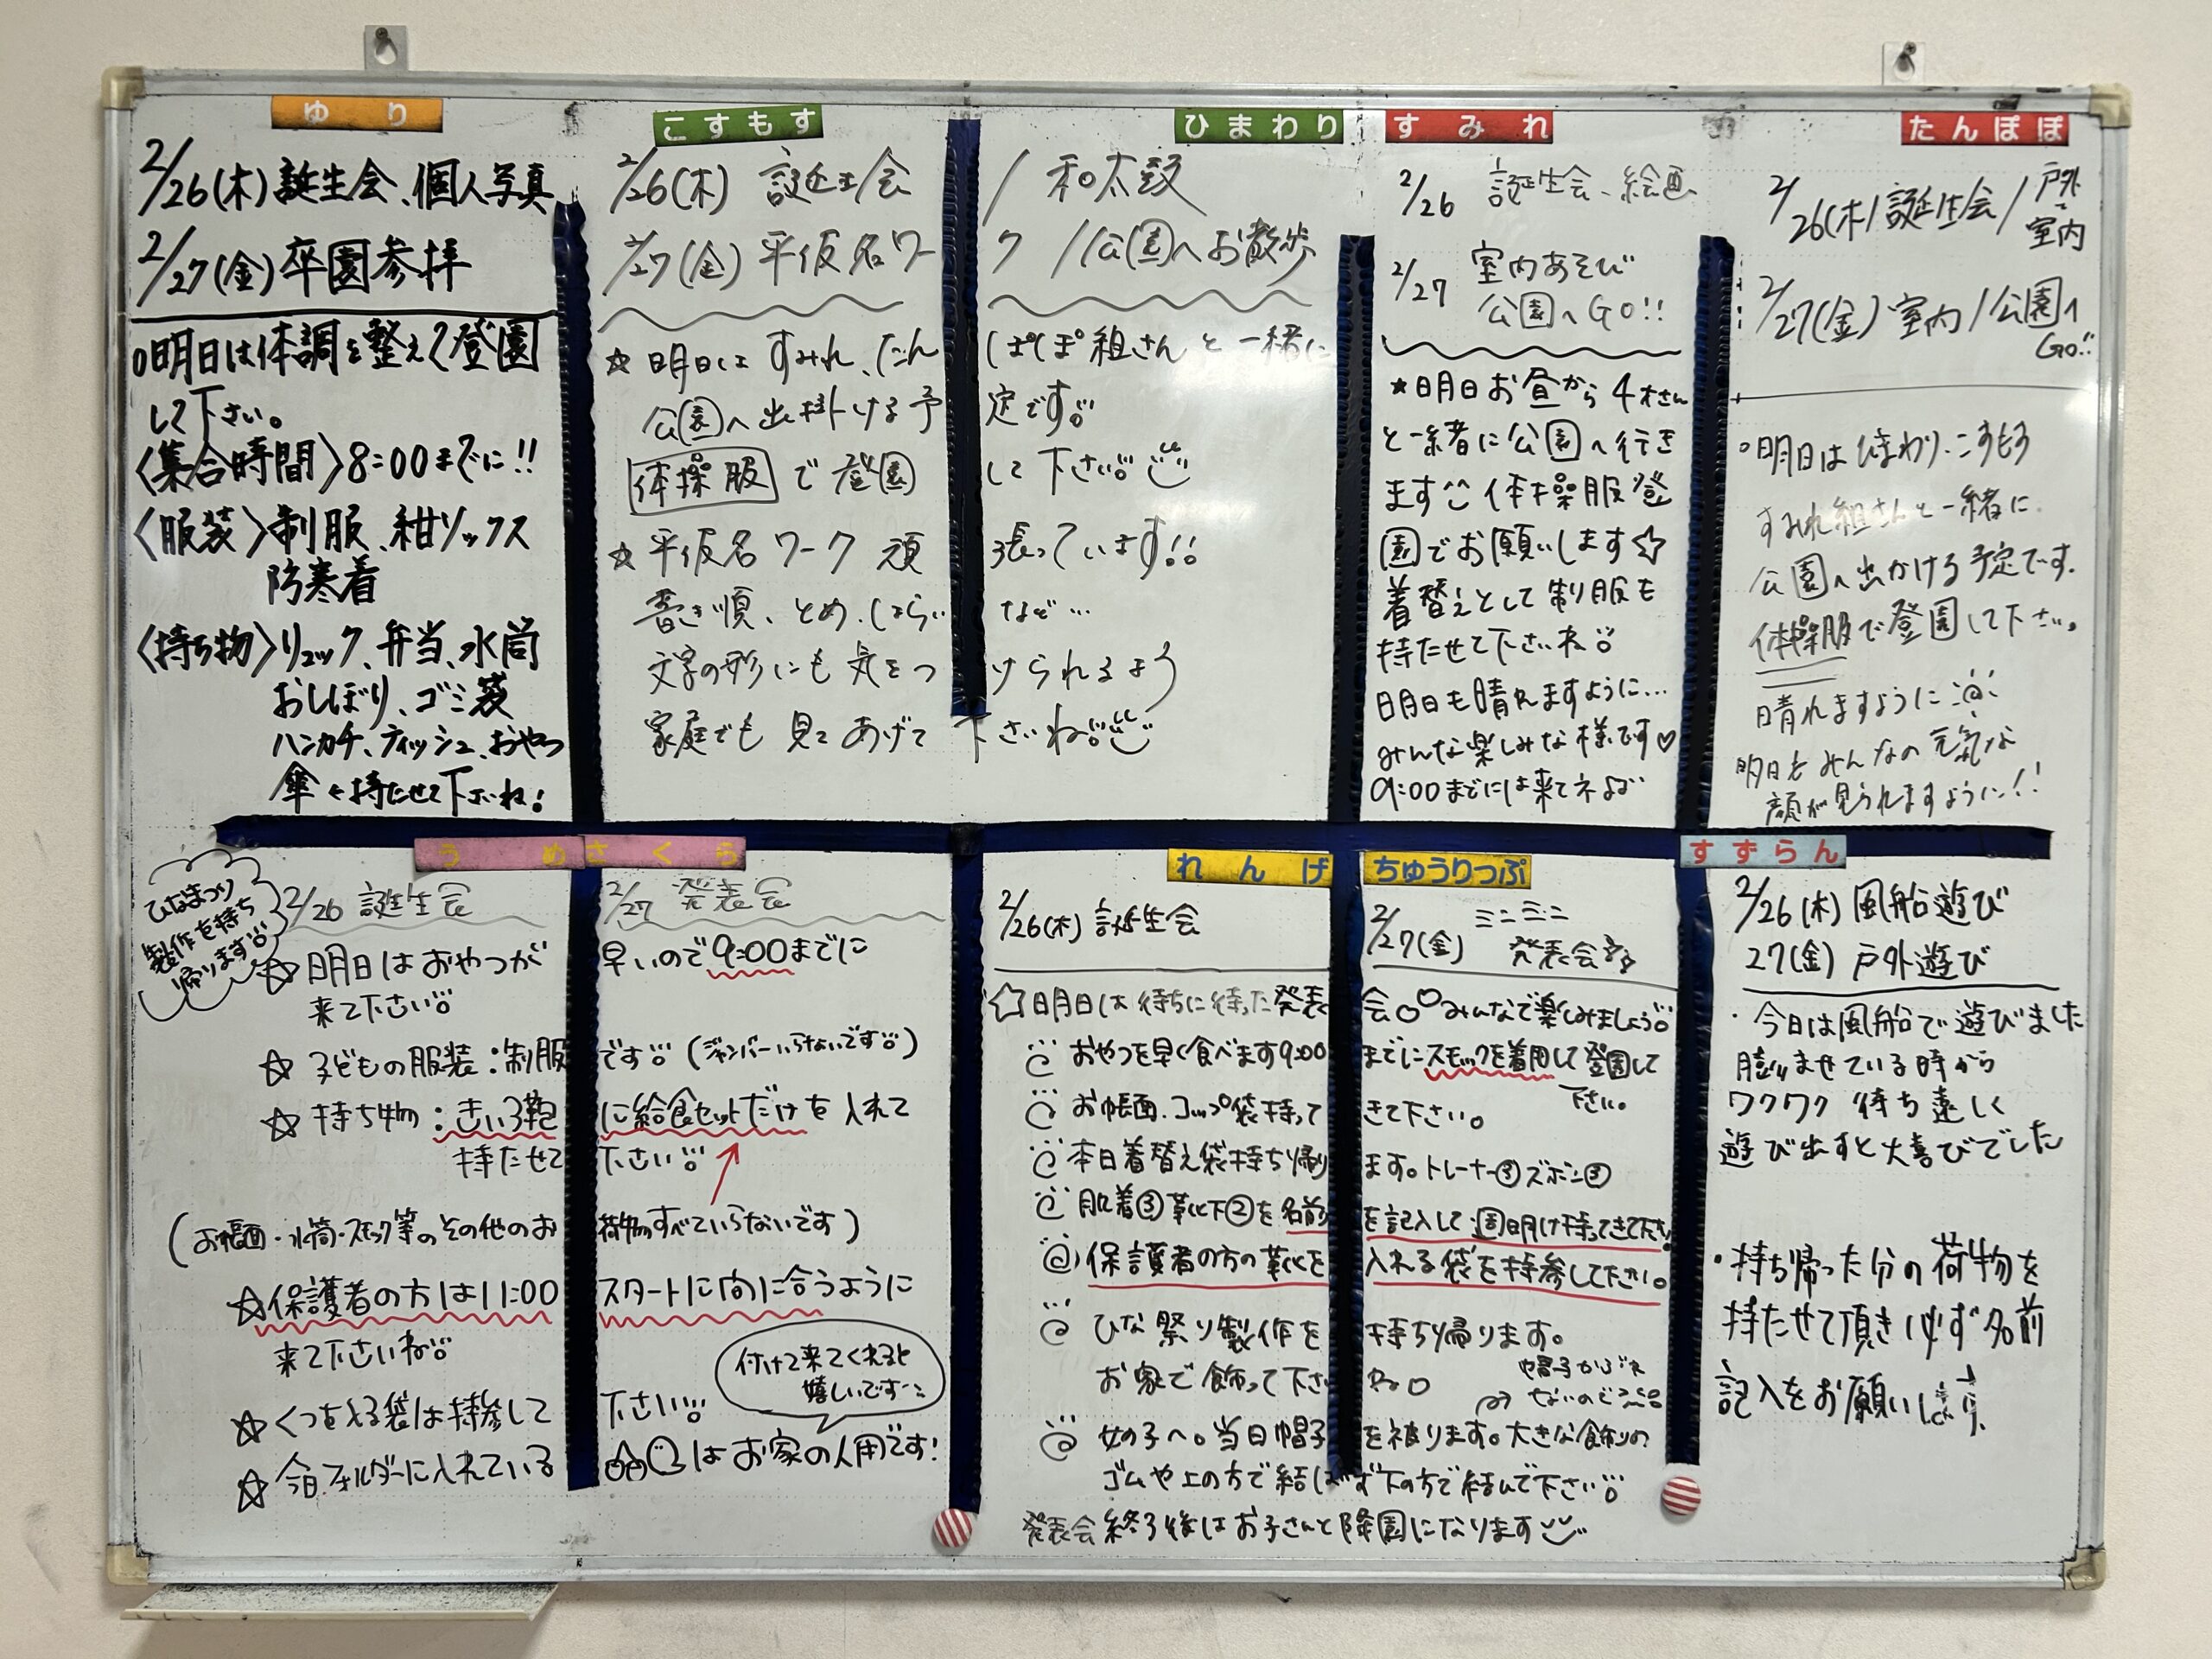 ゆり
2/26(木)誕生会、個人写真
2/27(金)卒園参拝
○明日は体調を整えて登園
して下さい。
〈集合時間〉8:00までに!!
〈服装〉制服、紺ソックス
防寒着
〈持ち物〉リュック、弁当、水筒
おしぼり、ゴミ袋
ハンカチ、ティッシュ、おやつ
傘を持たせて下さいね!
こすもす ひまわり
2/26(木) 誕生会 / 和太鼓
2/27(金) 平仮名ワーク / 公園へお散歩
☆ 明日は すみれ、たんぽぽ組さんと一緒に
公園へ出掛ける予定です。
体操服 で 登園して下さい。
☆ 平仮名ワーク 頑張っています!!
書き順、とめ、はらいなど…
文字の形にも気をつけられるよう
家庭でも 見てあげて下さいね
すみれ
2/26 誕生会、絵画
2/27 室内あそび
公園へGO!!
★明日お昼から4才さん
と一緒に公園へ行き
ます^^ 体操服登
園でお願いします☆
着替えとして制服も
持たせて下さいね
明日も晴れますように…
みんな楽しみな様です♡
9:00までには来てネ
たんぽぽ
2/26(木)誕生会/戸外
室内
2/27(金)室内/公園へ
GO!!
○明日はひまわり、こすもす
すみれ組さんと一緒に
公園へ出かける予定です。
体操服で登園して下さい。
晴れますように
明日もみんなの元気な
顔が見られますように!!
うめ さくら
ひなまつり
製作を持ち
帰ります
2/26 誕生会 2/27 発表会
☆ 明日はおやつが早いので9:00までに
来て下さい
☆ 子どもの服装:制服です (ジャンパーいらないです)
☆ 持ち物:きいろ鞄に給食セットだけを入れて
持たせて下さい
(お帳面・水筒・スモック等のその他のお荷物すべていらないです)
☆保護者の方は11:00スタートに間に合うように
来て下さいね
☆ くつを入る袋は持参して下さい
付けて来てくれると
嬉しいです
☆ 今日フォルダーに入れているはお家の人用です!
れんげ ちゅうりっぷ
2/26(木) 誕生会 2/27(金) ミニミニ
発表会
☆明日は待ちに待った発表会 みんなで楽しみましょう
おやつを早く食べます9:00までにスモックを着用して登園して
下さい。
お帳面、コップ袋持ってきて下さい。
本日着替え袋持ち帰ります。トレーナー③ズボン③
肌着③靴下②を名前を記入して週明け持ってきて下さい
保護者の方の靴を入れる袋を持参して下さい。
ひな祭り製作を持ち帰ります。
お家で飾って下さいね
帽子かぶれ
ないので
女の子へ。当日帽子を被ります。大きな飾りの
ゴムや上の方で結ばず下の方で結んで下さい
発表会終了後はお子さんと降園になります
すずらん
2/26(木) 風船遊び
27(金) 戸外遊び
・今日は風船で遊びました
膨ませている時から
ワクワク 待ち遠しく
遊び出すと大喜びでした
・持ち帰った分の荷物を
持たせて頂き必ず名前
記入をお願いします。